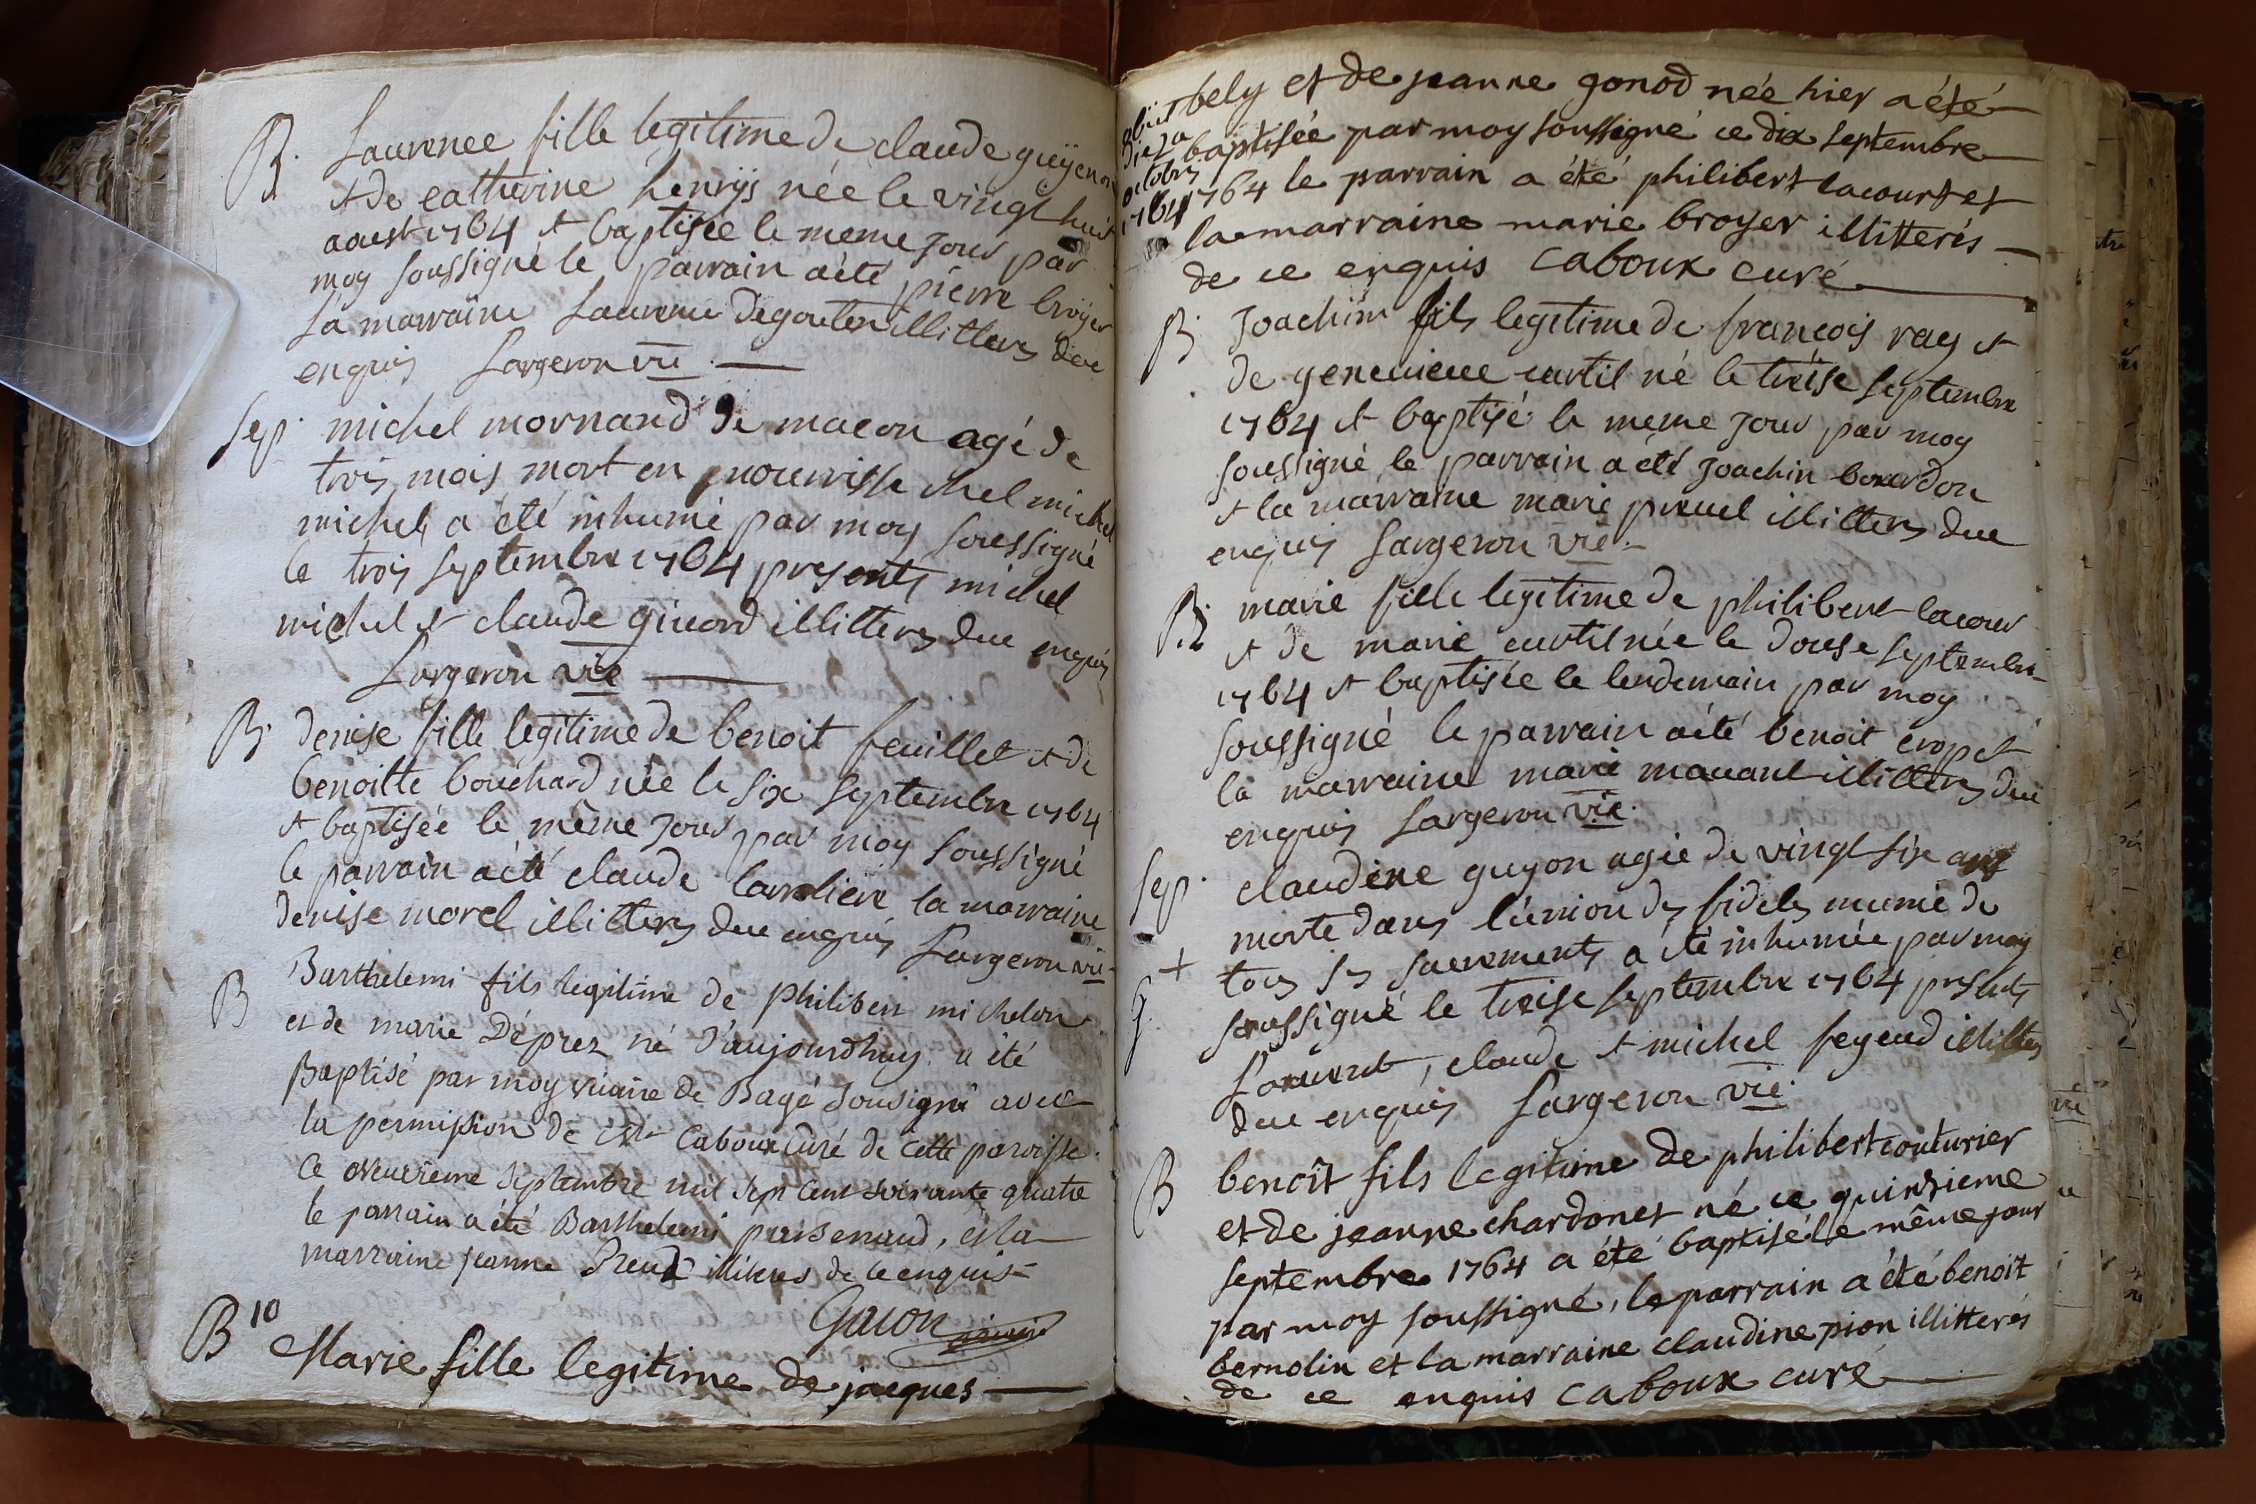 B. Laurence fille legitime de claude guÿenon
et de catherine henrÿs née le vingt huit
aoust 1764 et baptisée le meme jour par
moy soussigné le parrain a été pierre broÿer
la marraine Laurence Degouten illitterés de ce
enquis Largeron vic
Sep. michel mornand de macon agé de
trois mois mort en nourrisse chel michel
michel a été inhumé par moy soussigné
le trois septembre 1764 presents michel
michel et claude givord illitterés de ce enquis
Largeron vic
B. denise fille legitime de benoit feuillet et de
benoitte bouchard née le six septembre 1764
et baptisée le même jour par moy soussigné
le parrain a été claude la marraine
denise morel illitterés de ce enquis Largeron vic
B Barthelemi fils legitime de Philibert michelon
et de marie Déprez né d'aujourdhuy a été
Baptisé par moy vicaire de Bagé sousigné avec
la permission de Mr Caboux curé de cette paroisse
ce neuvieme septembre mil sept cent soixante quatre
le parrain a été Barthelemi, et la
marraine jeanne illiteres de ce enquis
Gacon vicaire
B 10 Marie fille legitime de jacques
bely et de jeanne gonod née hier a été
obiit
die 20
octobris
1764
baptisée par moy soussigné ce dix septembre
1764 le parrain a été philibert lacourt et
la marraine marie broyer illitterés
de ce enquis caboux curé
B. Joachim fils legitime de francois ray et
de genevieve curtil né le treise septembre
1764 et baptisé le meme jour par moy
soussigné le parrain a été Joachin bourdon
et la marraine marie preuel illitterés de ce
enquis Largeron vic
B. marie fille legitime de philibert lacour
et de marie curtil née le douse septembre
1764 et baptisée le lendemain par moy
soussigné le parrain a été benoit crop et
la marraine marie illitterés de ce
enquis Largeron vic.
Sep. claudine guyon agée de vingt six ans
morte dans l'union des fideles munie de
+ tous ses sacrements a été inhumée par moy
G. soussigné le treise septembre 1764 presents
Laurent, claude et michel feyeud illitterés
de ce enquis Largeron vic.
B benoît fils legitime de philibert couturier
et de jeanne chardonet né ce quinzieme
septembre 1764 a été baptisé le même jour
par moy soussigné, le parrain a été benoit
bernolin et la marraine claudine pion illitterés
de ce enquis caboux curé